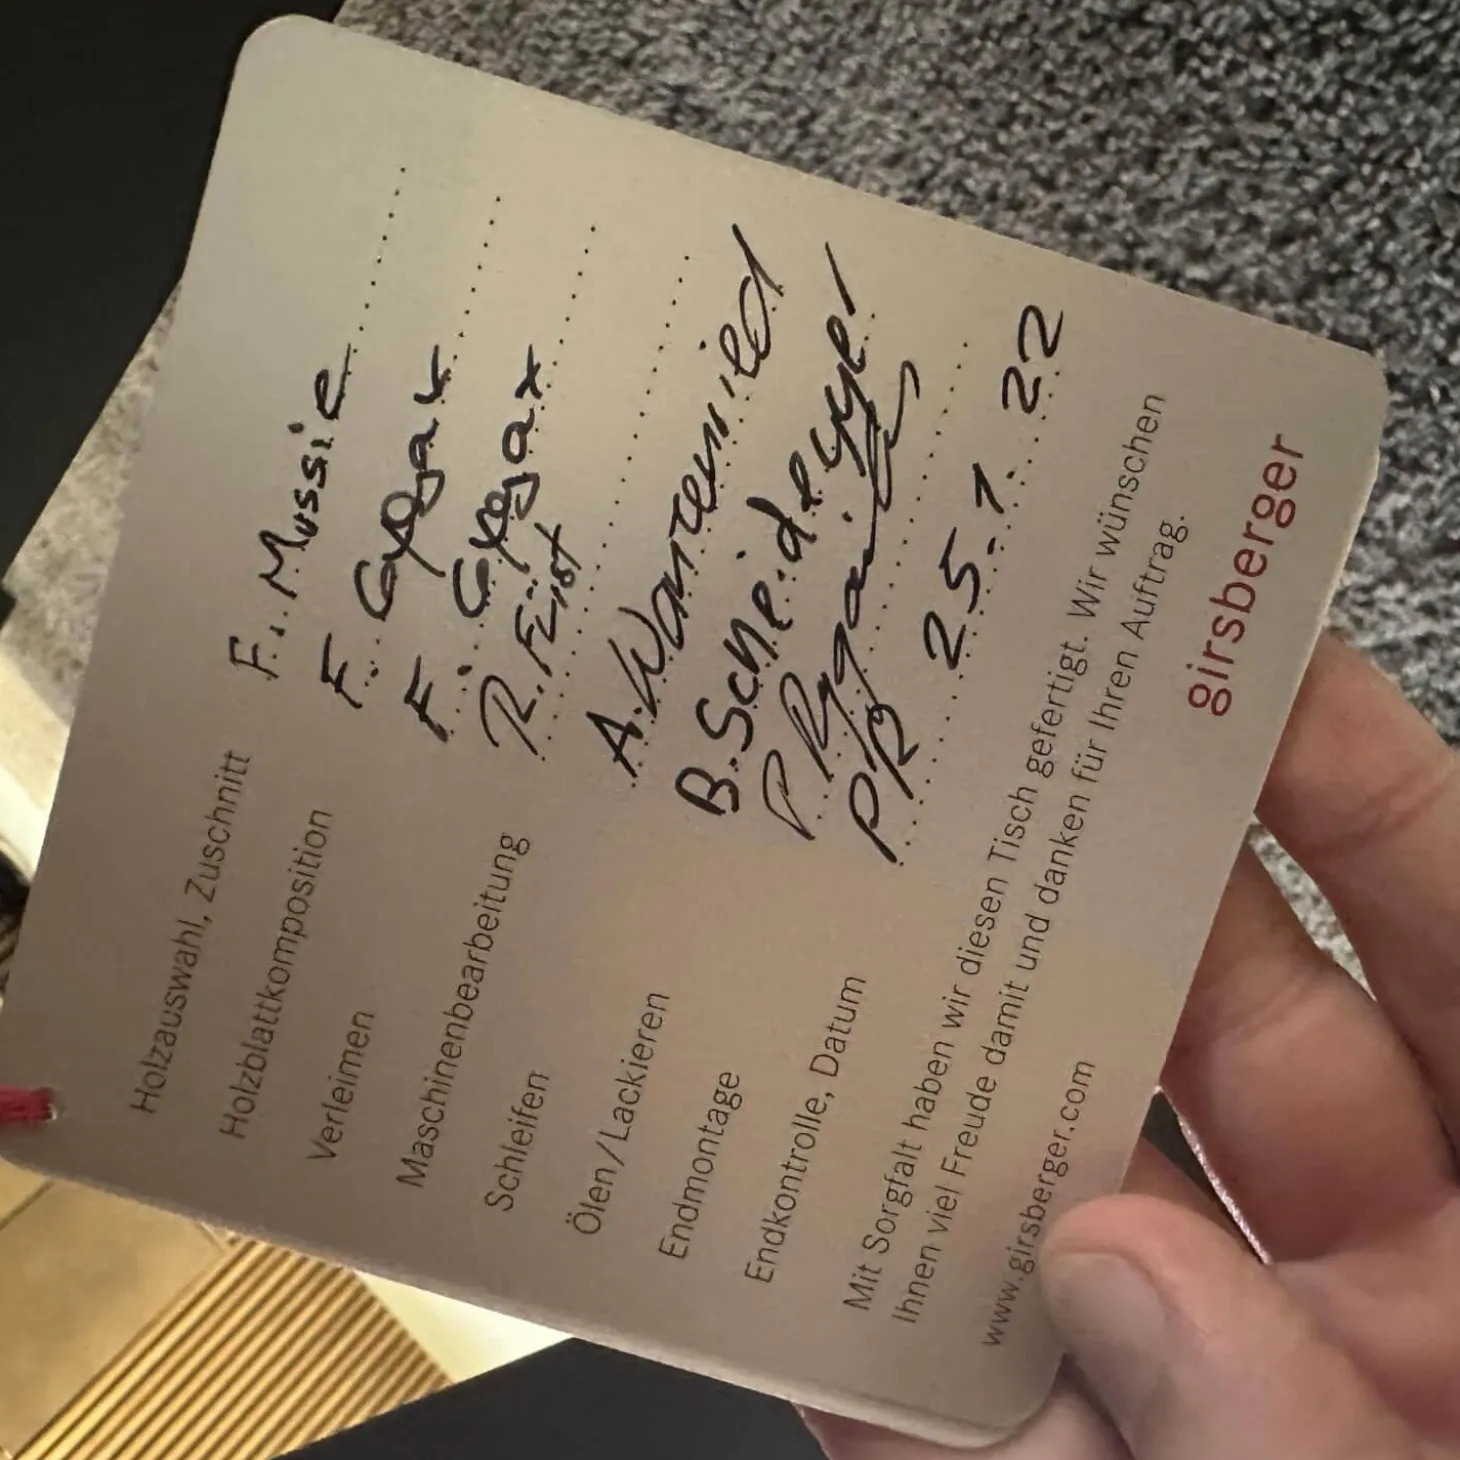 Holzauswahl, Zuschnitt F. Mussie
Holzblattkomposition F. Gygax
Verleimen F. Gygax
Maschinenbearbeitung R. Feist
Schleifen A. Wanzenried
Ölen/Lackieren B. Scheidegger
Endmontage P
Endkontrolle, Datum PR 25.1.22
Mit Sorgfalt haben wir diesen Tisch gefertigt. Wir wünschen
Ihnen viel Freude damit und danken für Ihren Auftrag.
www.girsberger.com
girsberger